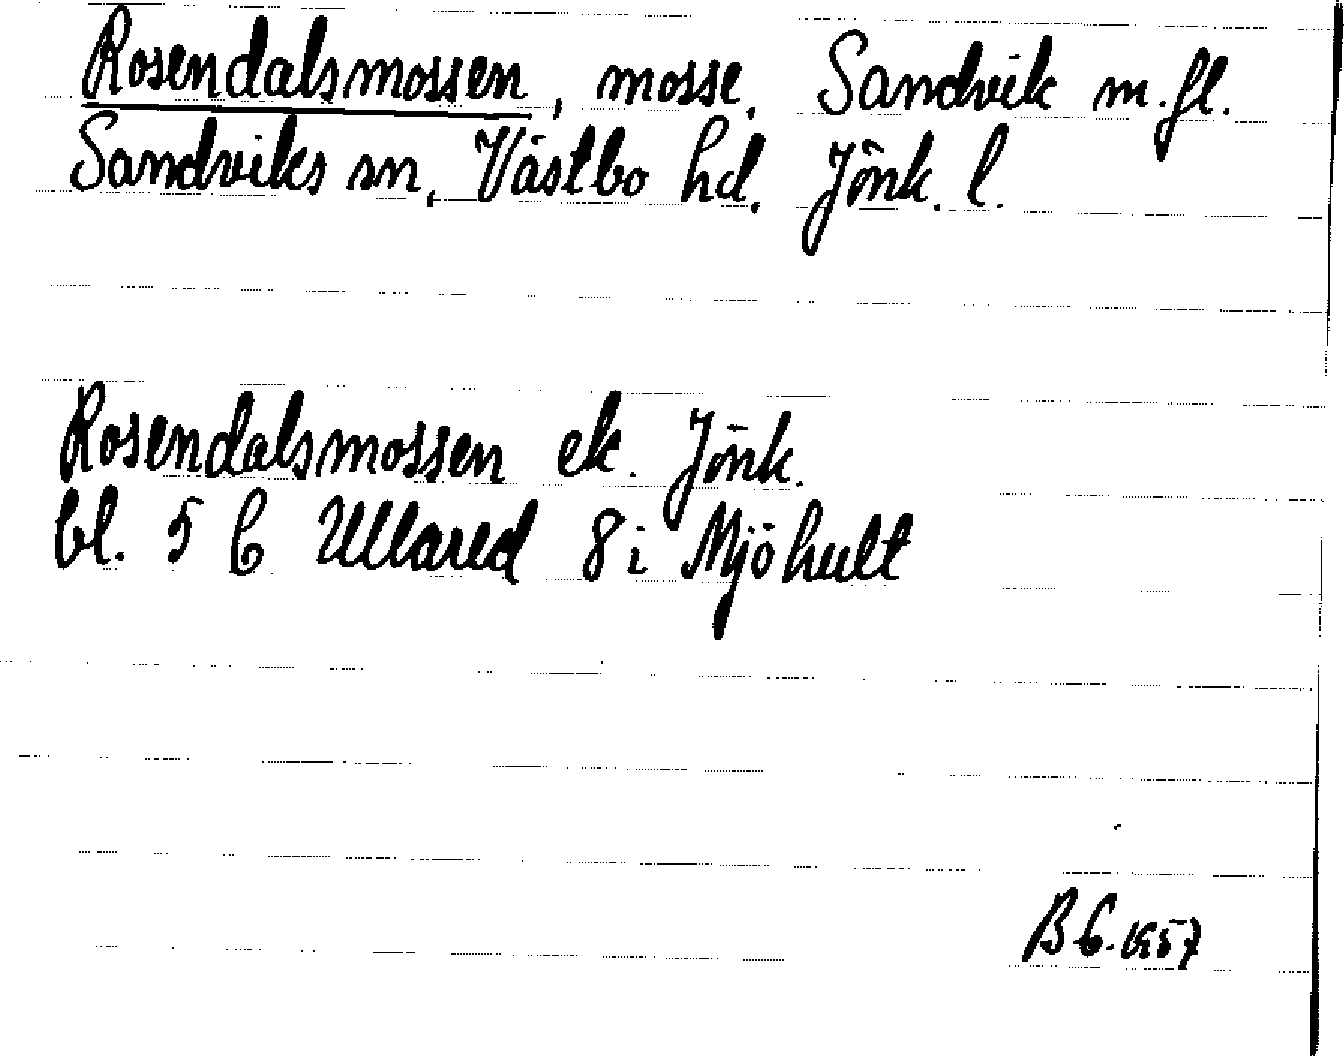 Rosendalsmossen, mosse, Sandvik m.fl.
Sandviks sn, Västbo hd. Jönk. l.
Rosendalsmossen ek. Jönk.
bl. 5 C Ullared 8 i Mjöhult
B C. 1957